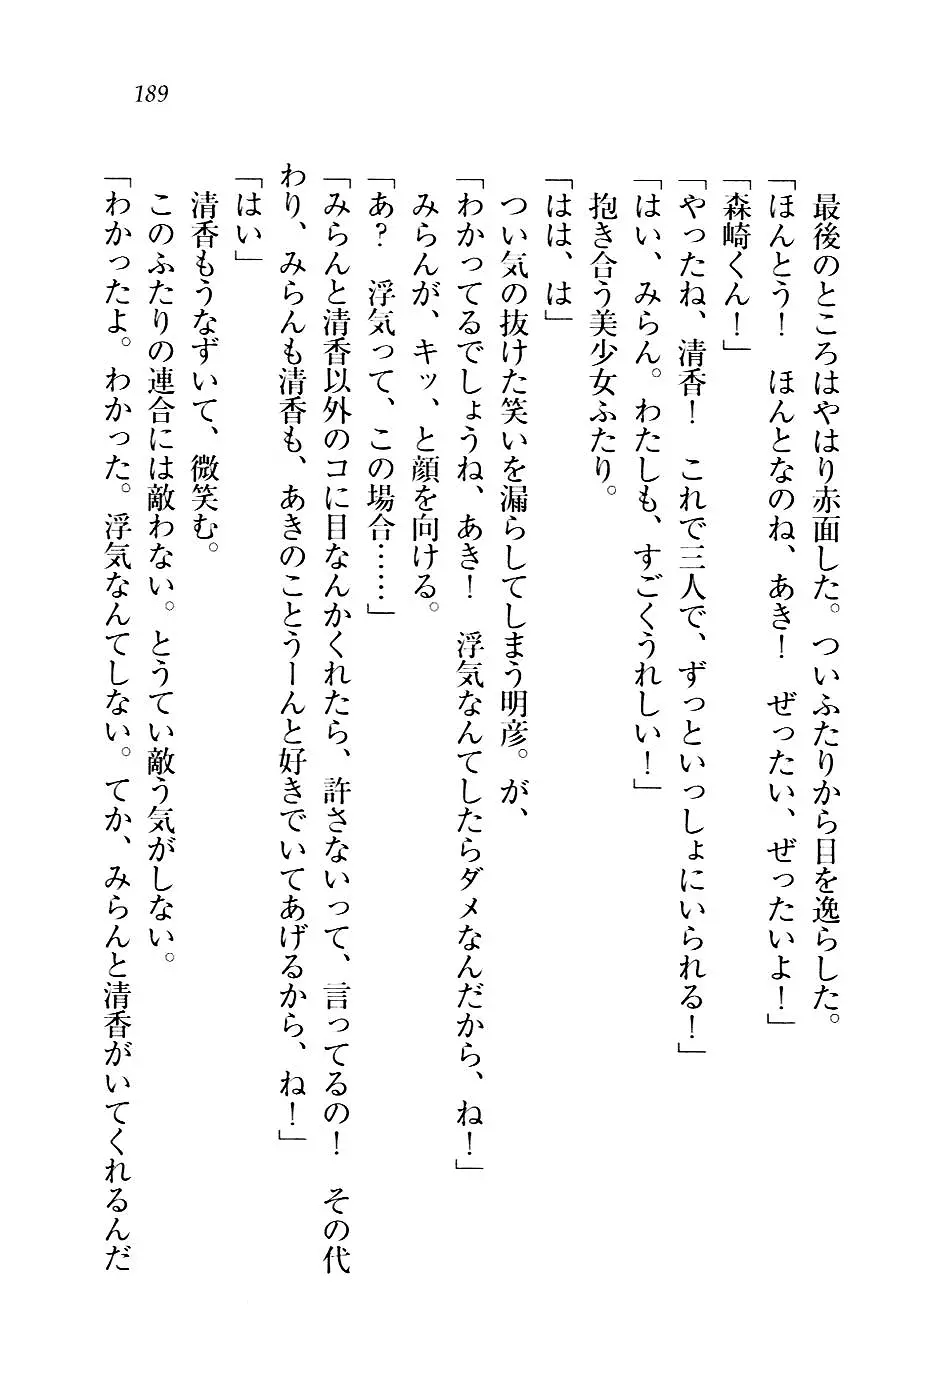 189
最後のところはやはり赤面した。ついふたりから目を逸らした。
「ほんとう！　ほんとなのね、あき！　ぜったい、ぜったいよ！」
「森崎くん！」
「やったね、清香！　これで三人で、ずっといっしょにいられる！」
「はい、みらん。わたしも、すごくうれしい！」
抱き合う美少女ふたり。
「はは、は」
つい気の抜けた笑いを漏らしてしまう明彦。が、
「わかってるでしょうね、あき！　浮気なんてしたらダメなんだから、ね！」
みらんが、キッ、と顔を向ける。
「あ？　浮気って、この場合……」
「みらんと清香以外のコに目なんかくれたら、許さないって、言ってるの！　その代
わり、みらんも清香も、あきのことうーんと好きでいてあげるから、ね！」
「はい」
清香もうなずいて、微笑む。
このふたりの連合には敵わない。とうてい敵う気がしない。
「わかったよ。わかった。浮気なんてしない。てか、みらんと清香がいてくれるんだ